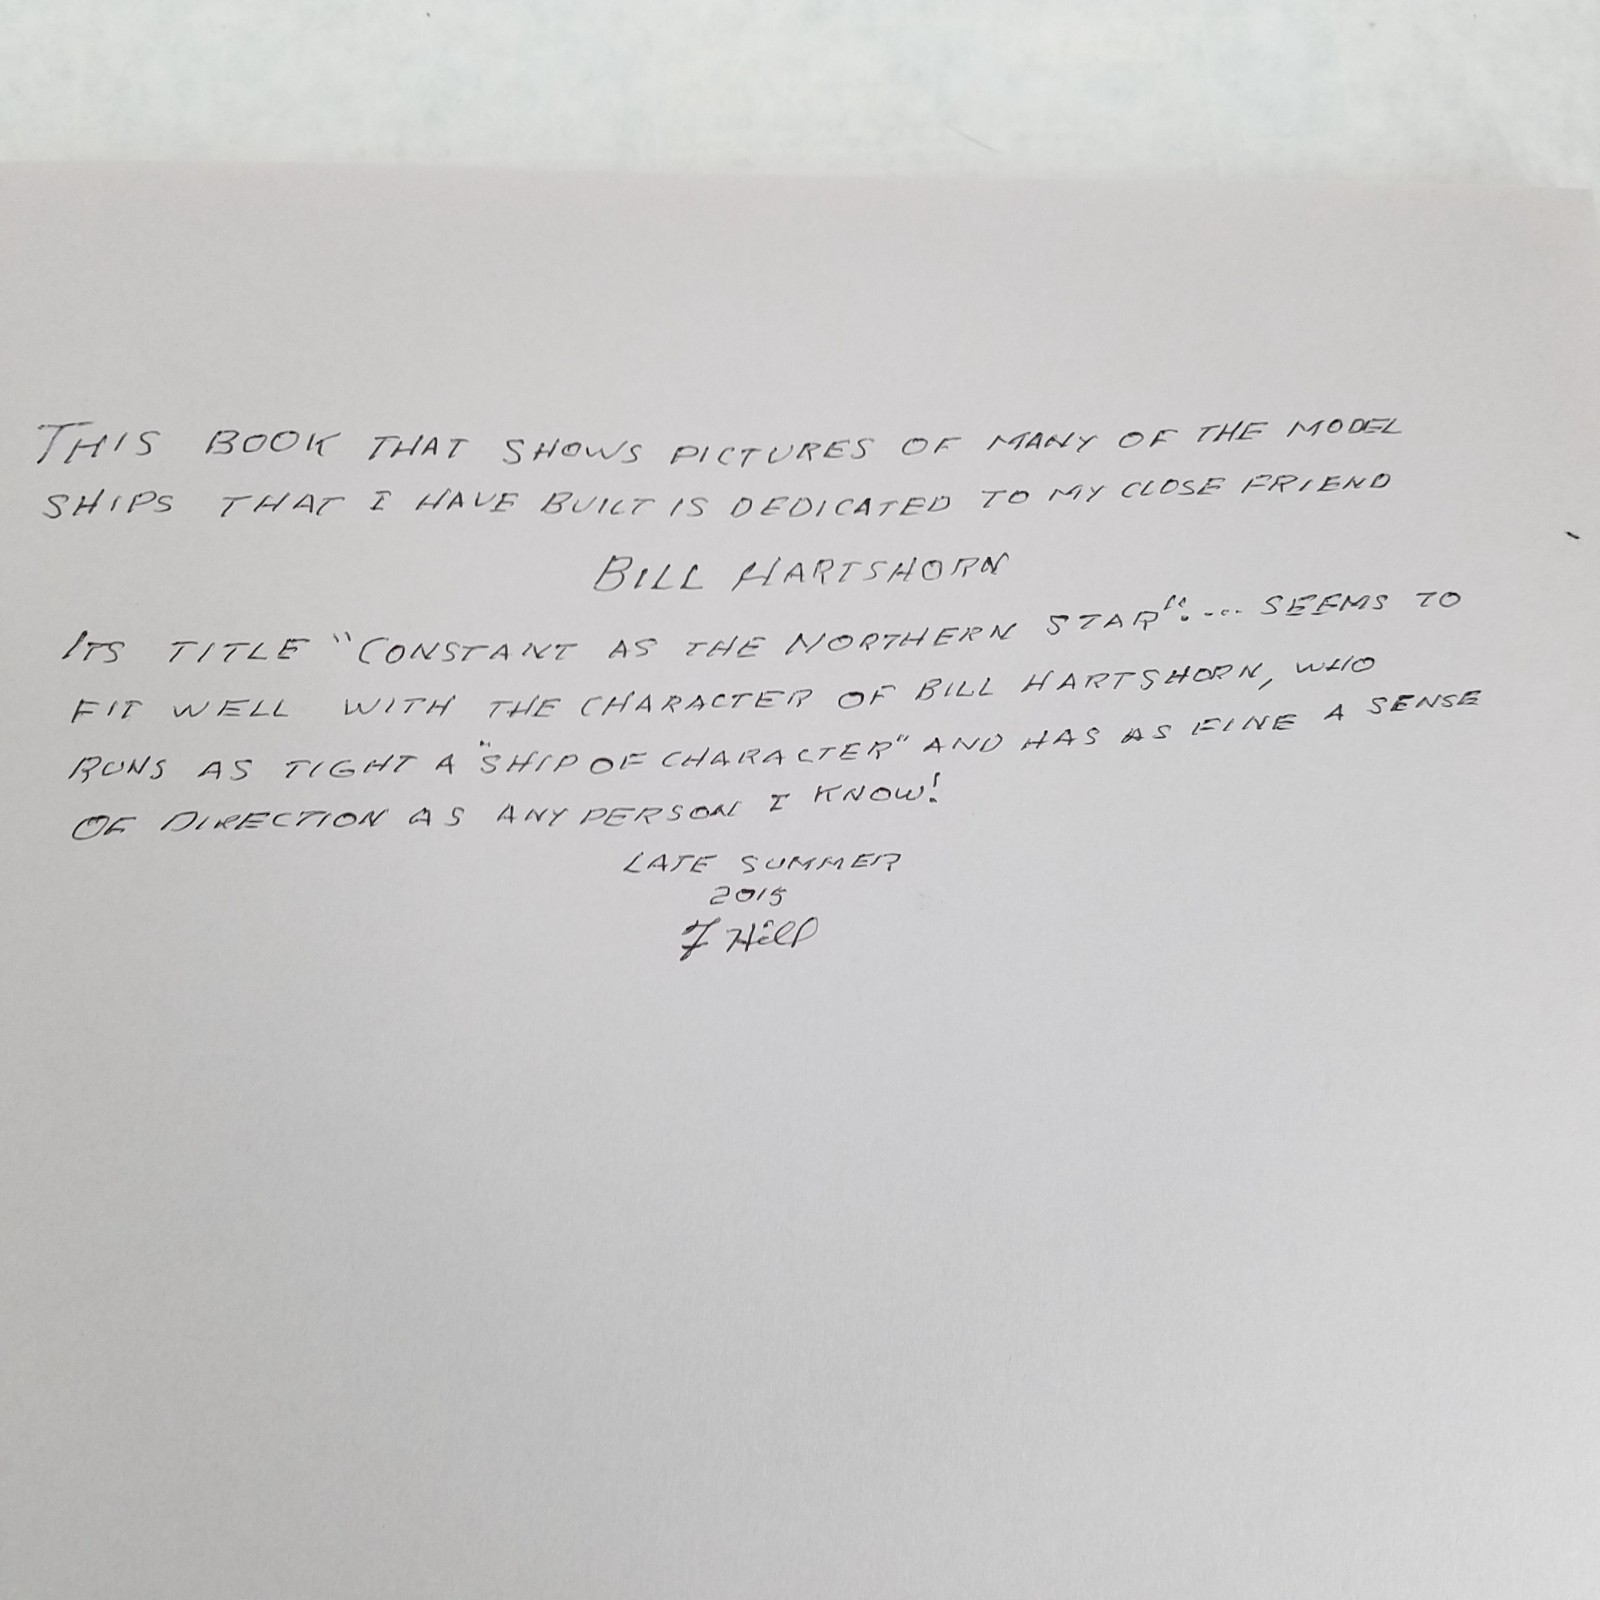 THIS BOOK THAT SHOWS PICTURES OF MANY OF THE MODEL
SHIPS THAT I HAVE BUILT IS DEDICATED TO MY CLOSE FRIEND
BILL HARTSHORN
ITS TITLE "CONSTANT AS THE NORTHERN STAR".... SEEMS TO
FIT WELL WITH THE CHARACTER OF BILL HARTSHORN, WHO
RUNS AS TIGHT A "SHIP OF CHARACTER" AND HAS AS FINE A SENSE
OF DIRECTION AS ANY PERSON I KNOW!
LATE SUMMER
2015
J Hill